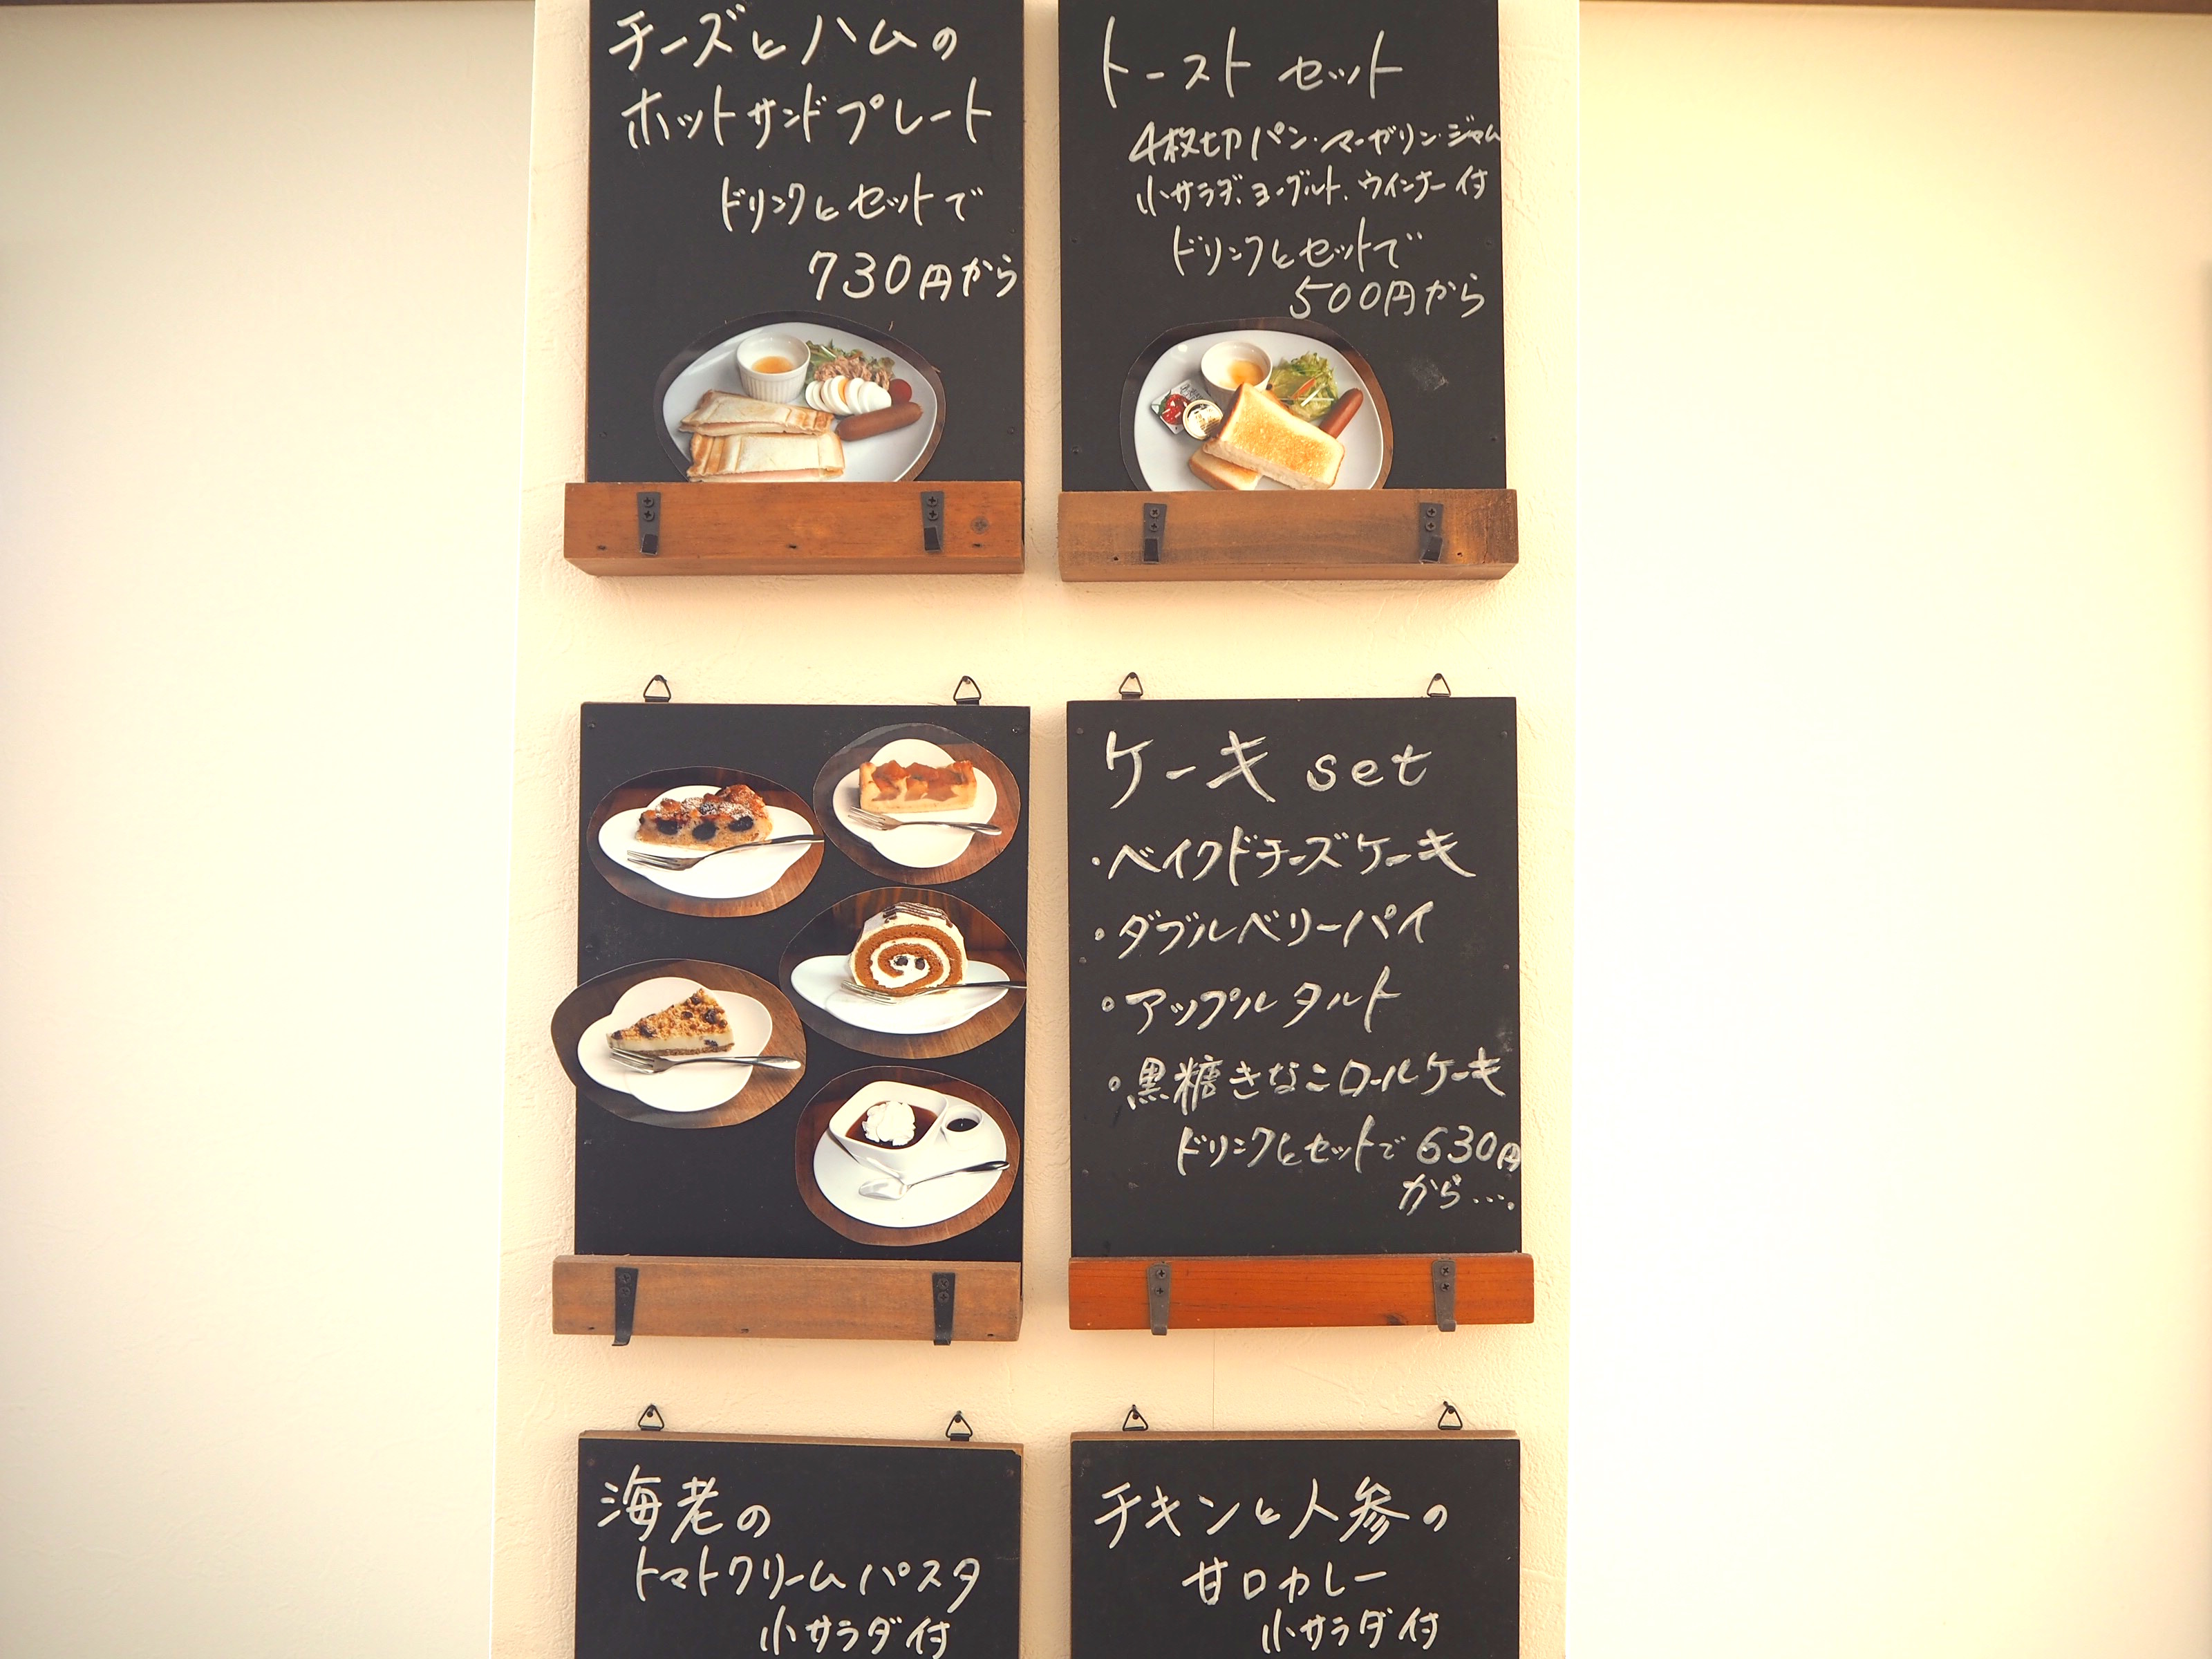 チーズとハムの
ホットサンドプレート
ドリンクとセットで
730円から
トースト セット
4枚切パン・マーガリン・ジャム
小サラダ、ヨーグルト、ウインナー付
ドリンクとセットで
500円から
ケーキ set
・ベイクドチーズケーキ
・ダブルベリーパイ
・アップルタルト
・黒糖きなこロールケーキ
ドリンクとセットで 630円
から….
海老の
トマトクリームパスタ
小サラダ付
チキンと人参の
甘口カレー
小サラダ付